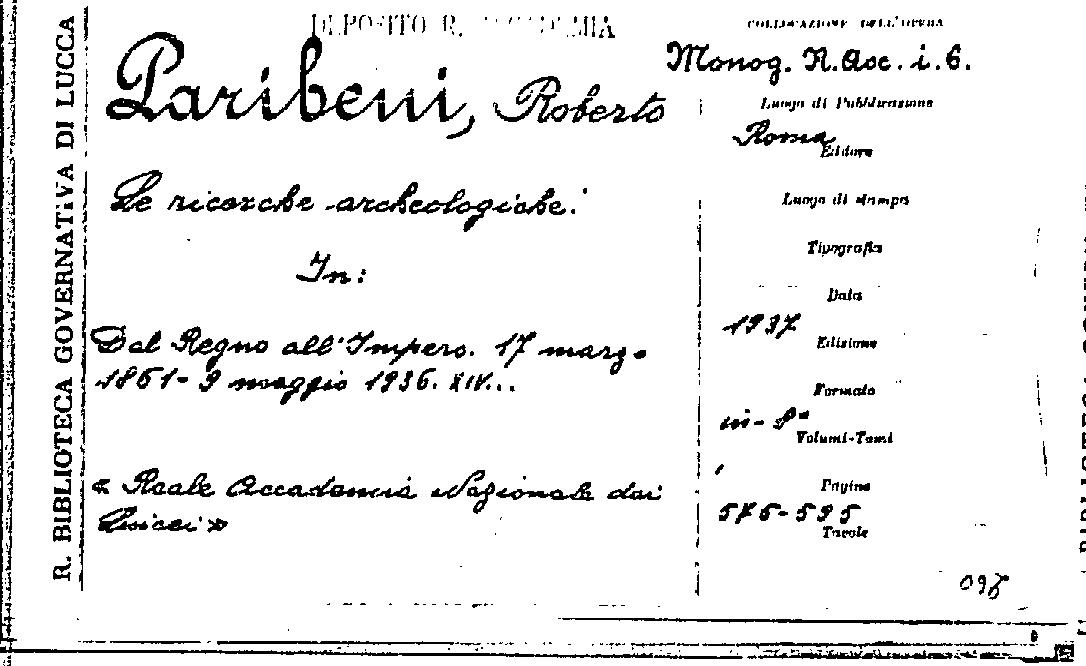 R. BIBLIOTECA GOVERNATIVA DI LUCCA
DEPOSITO R. ACCADEMIA
COLLOCAZIONE DELL'OPERA
Monog. N. Acc. i. 6.
Paribeni, Roberto
Luogo di Pubblicazione
Roma
Editore
Le ricerche archeologiche.
Luogo di stampa
Tipografia
In:
Data
1937
Dal Regno all'Impero. 17 marzo
1861 - 9 maggio 1936. XIV...
Edizione
Formato
in-8°
Volumi-Tomi
« Reale Accademia Nazionale dei
Lincei »
Pagine
575-595
Tavole